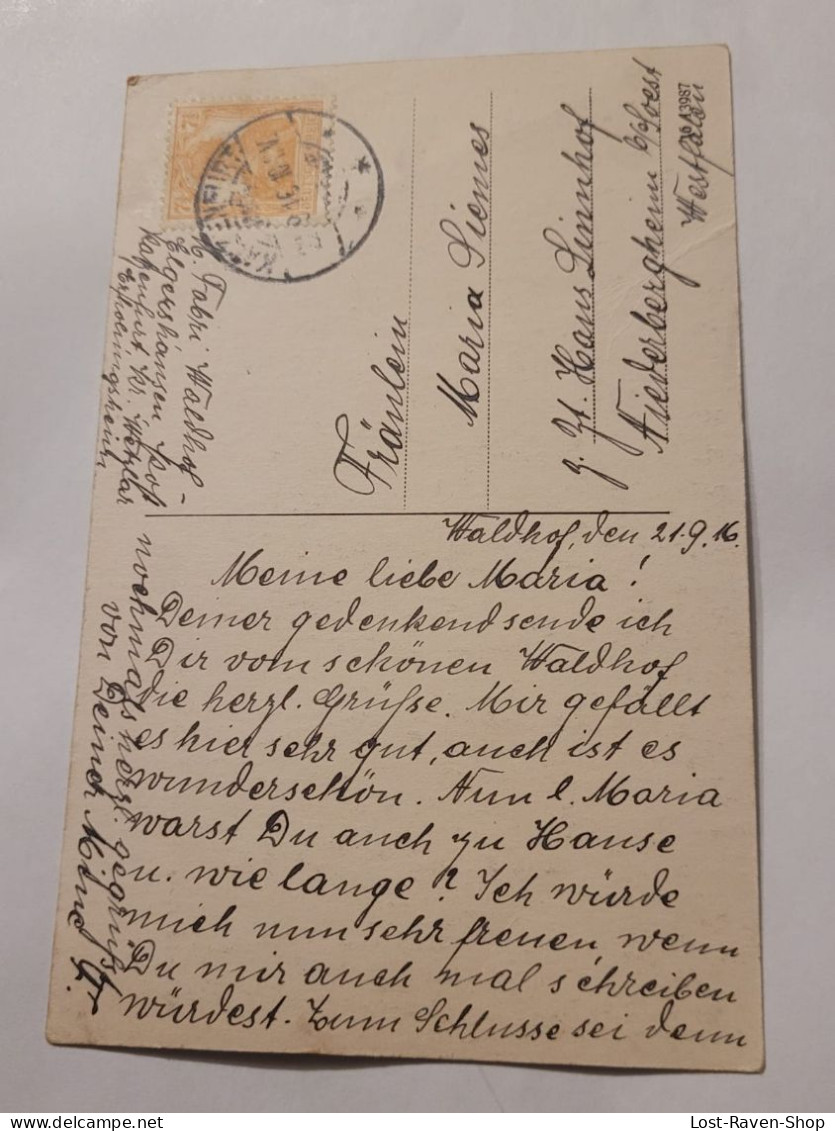 Fräulein
Maria Siemes
z. Zt. Haus Linnhof
Niederbergheim b/Soest
Westfalen
A3987
7½
KATZENFURT
Fabri Waldhof-
Elgershausen Post
Katzenfurt Kr. Wetzlar
Erholungsheim
Waldhof, den 21.9.16.
Meine liebe Maria!
Deiner gedenkend sende ich
Dir vom schönen Waldhof
die herzl. Grüße. Mir gefällt
es hier sehr gut, auch ist es
wunderschön. Nun l. Maria
warst Du auch zu Hause
u. wie lange? Ich würde
mich nun sehr freuen wenn
Du mir auch mal schreiben
würdest. Zum Schlusse sei denn
nochmals herzl. gegrüßt
von Deiner
Lost-Raven-Shop